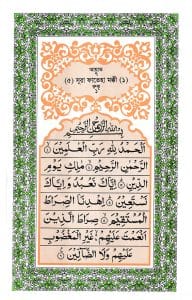 (৫) সূরা ফাতেহা মক্কী (১)
بِسْمِ اللهِ الرَّحْمٰنِ الرَّحِيْمِ
اَلْحَمْدُ لِلّٰهِ رَبِّ الْعٰلَمِيْنَ ۝
الرَّحْمٰنِ الرَّحِيْمِ ۝ مٰلِكِ يَوْمِ
الدِّيْنِ ۝ اِيَّاكَ نَعْبُدُ وَاِيَّاكَ
نَسْتَعِيْنُ ۝ اِهْدِنَا الصِّرَاطَ
الْمُسْتَقِيْمَ ۝ صِرَاطَ الَّذِيْنَ
اَنْعَمْتَ عَلَيْهِمْ غَيْرِ الْمَغْضُوْبِ
عَلَيْهِمْ وَلَا الضَّآلِّيْنَ ۝